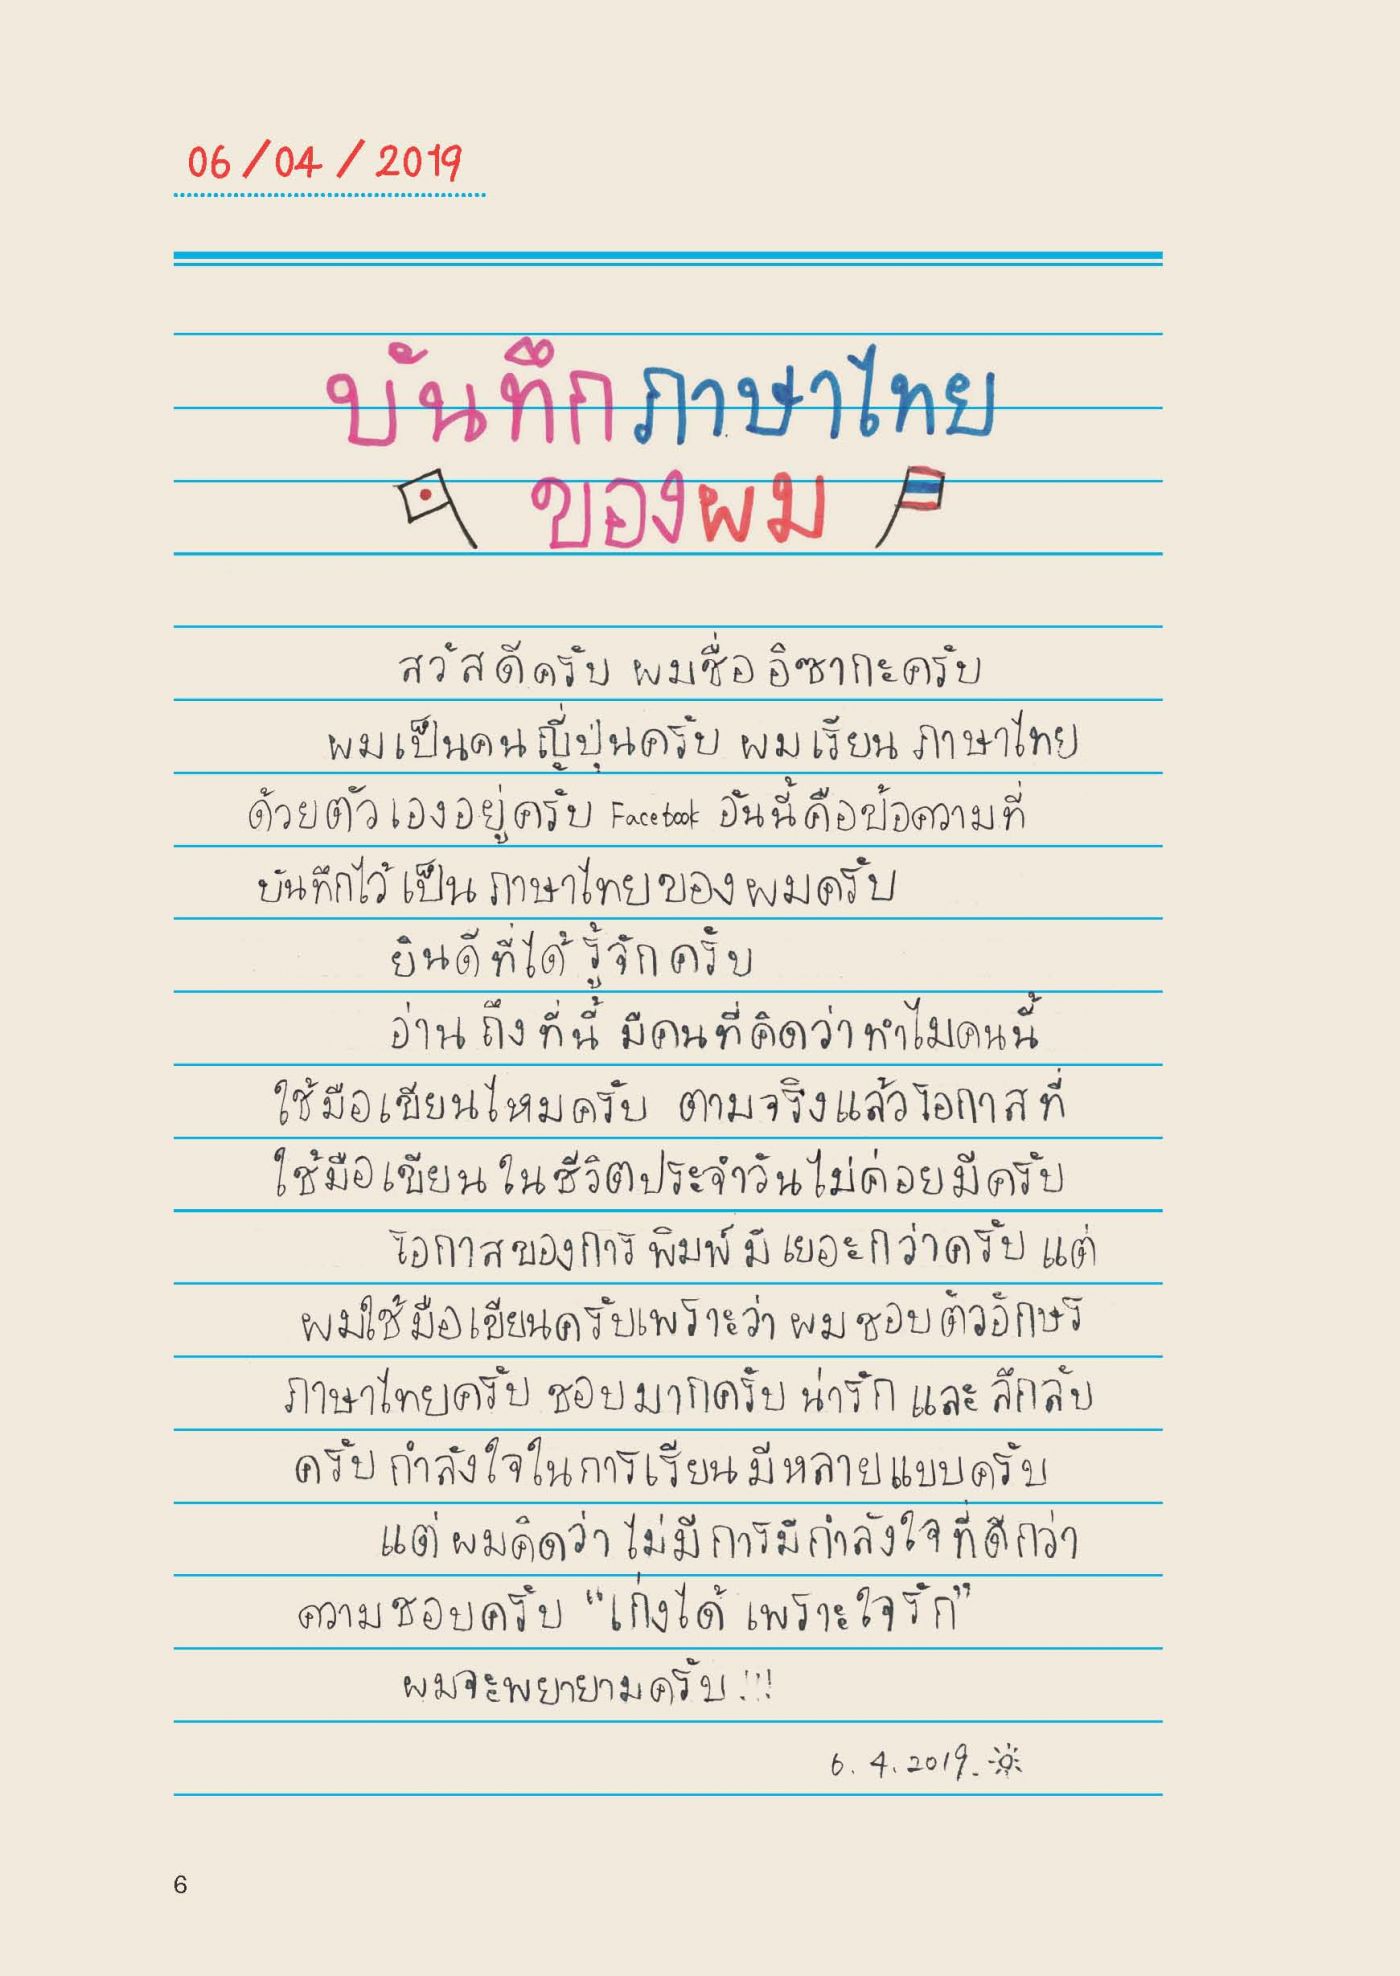 06/04/2019
บันทึกภาษาไทย
ของผม
สวัสดีครับ ผมชื่ออิซากะครับ
ผมเป็นคนญี่ปุ่นครับ ผมเรียนภาษาไทย
ด้วยตัวเองอยู่ครับ Facebook อันนี้คือข้อความที่
บันทึกไว้เป็นภาษาไทยของผมครับ
ยินดีที่ได้รู้จักครับ
อ่านถึงที่นี้ มีคนที่คิดว่าทำไมคนนี้
ใช้มือเขียนไหมครับ ตามจริงแล้วโอกาสที่
ใช้มือเขียนในชีวิตประจำวันไม่ค่อยมีครับ
โอกาสของการพิมพ์มีเยอะกว่าครับ แต่
ผมใช้มือเขียนครับเพราะว่า ผมชอบตัวอักษร
ภาษาไทยครับ ชอบมากครับ น่ารัก และ ลึกลับ
ครับ กำลังใจในการเรียนมีหลายแบบครับ
แต่ผมคิดว่า ไม่มีการมีกำลังใจที่ดีกว่า
ความชอบครับ “เก่งได้ เพราะใจรัก”
ผมจะพยายามครับ!!!
6.4.2019.
6